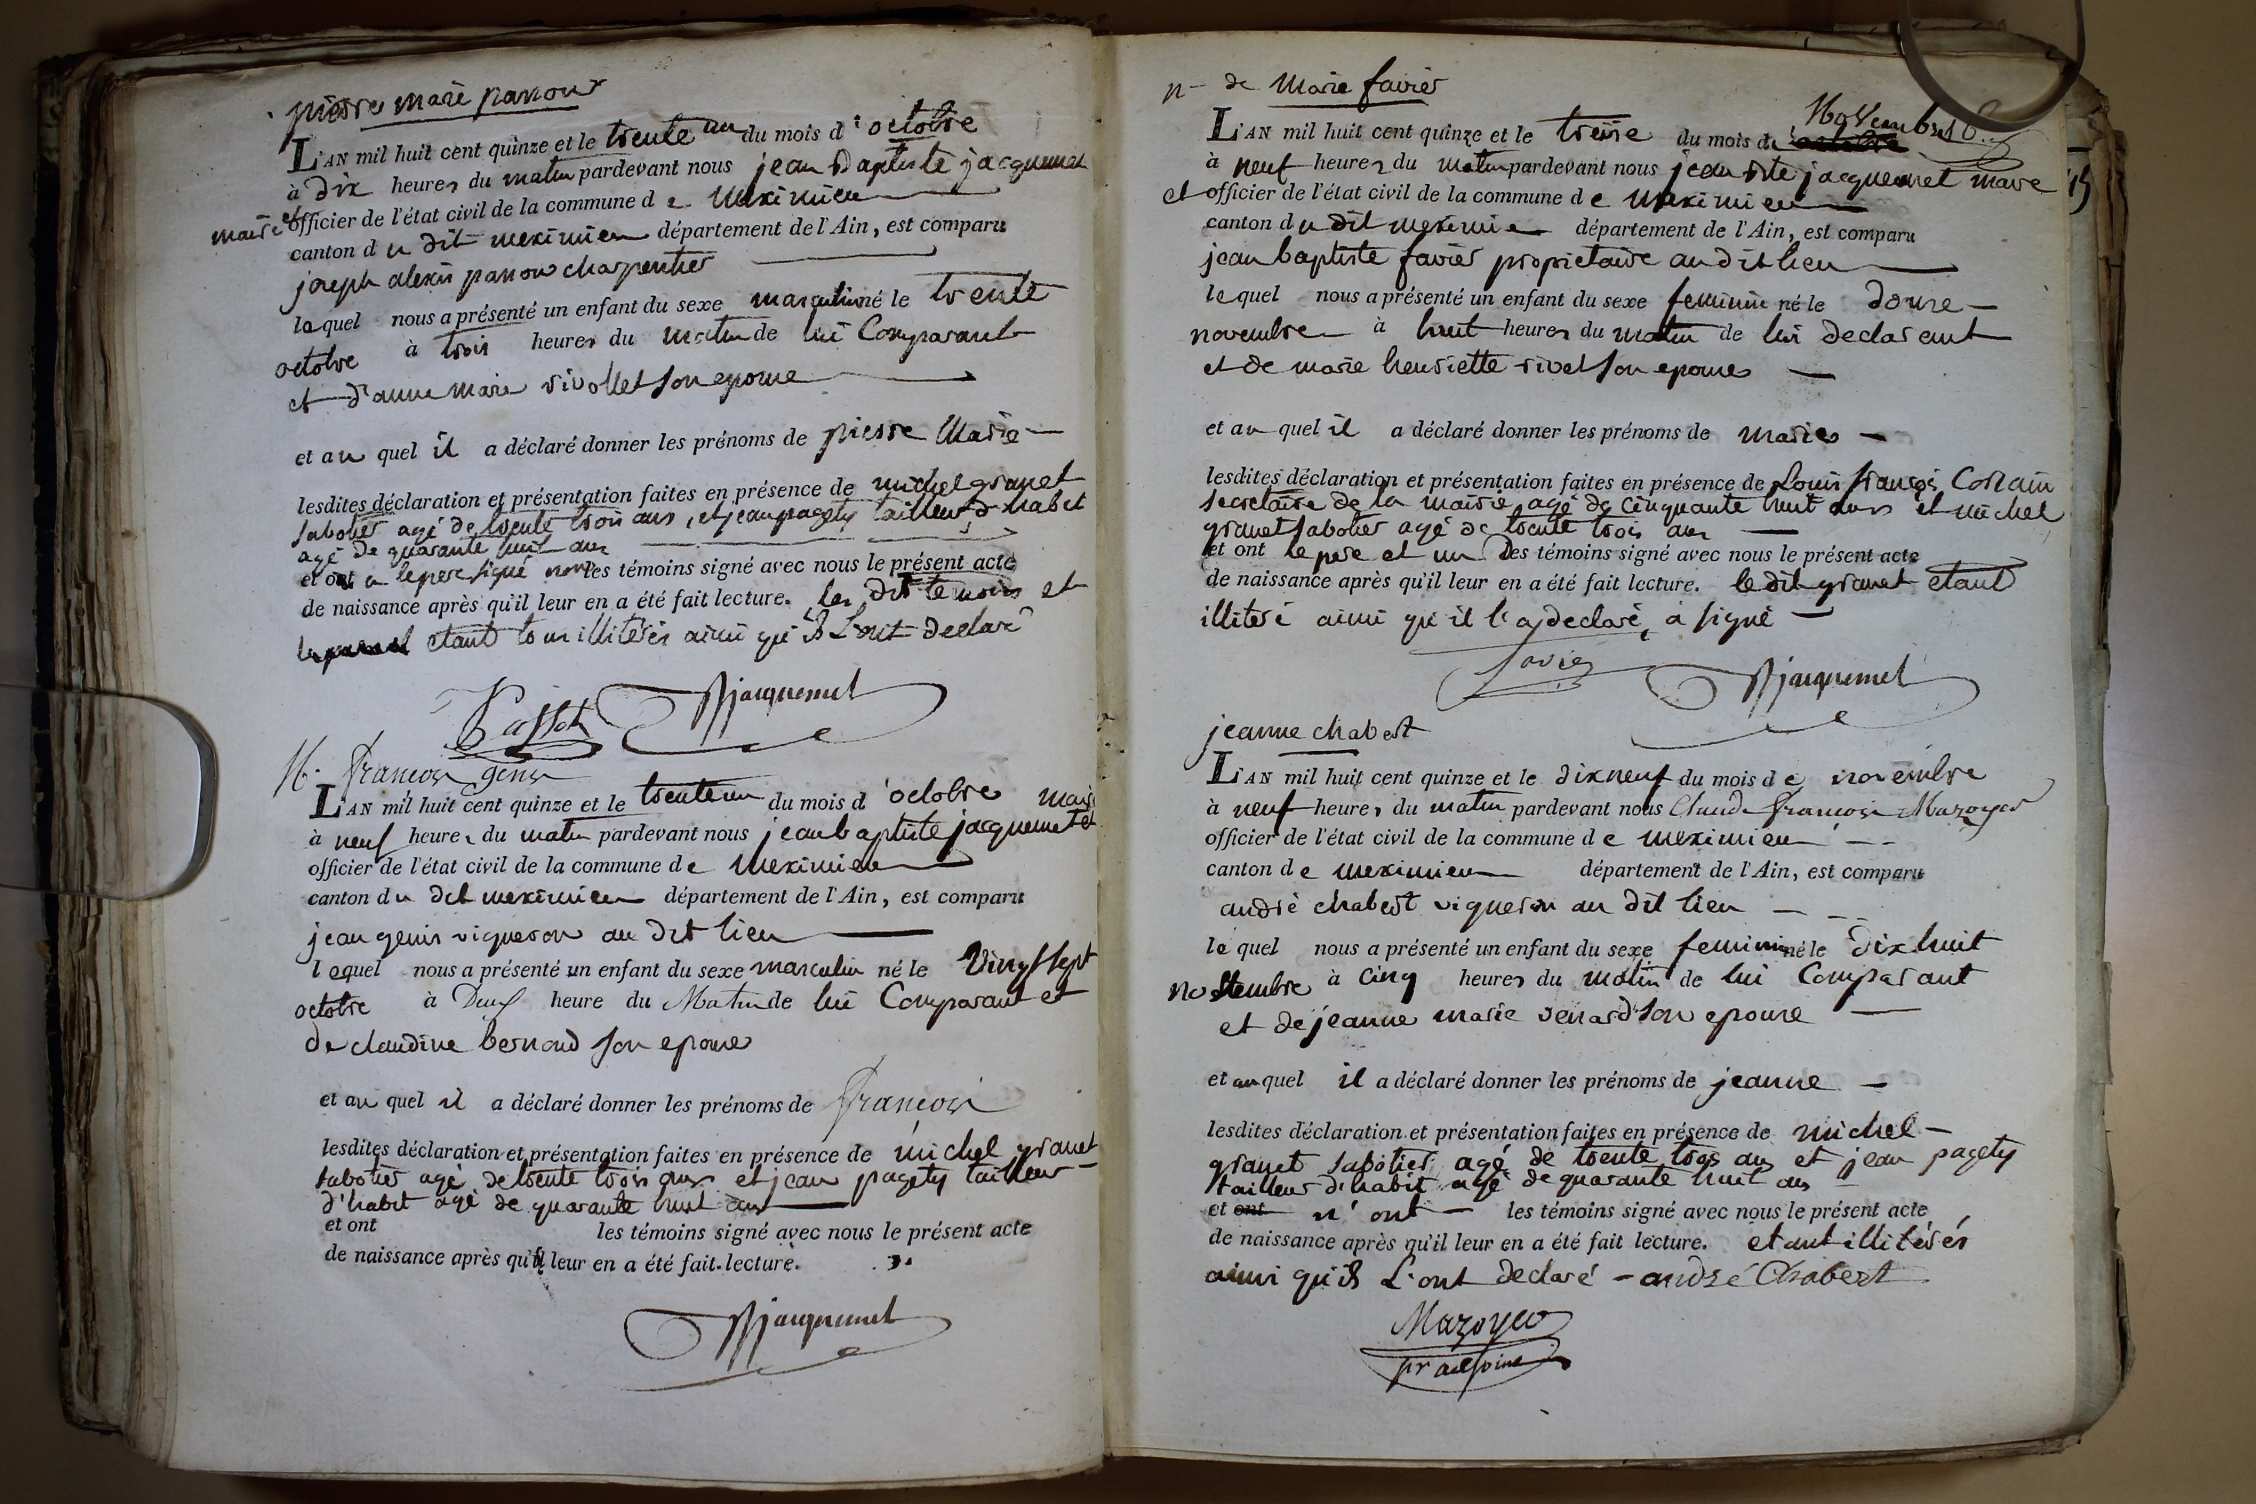 pierre marie parrour
L'AN mil huit cent quinze et le trente un du mois d' octobre
à dix heures du matin pardevant nous jean Baptiste jacquemet
maire et officier de l'état civil de la commune de meximieu
canton du dit meximieu département de l'Ain, est comparu
joseph alexis parrour charpentier
lequel nous a présenté un enfant du sexe masculin né le trente
octobre à trois heures du matin de lui Comparant
et d'anne marie rivollet son epouse
et au quel il a déclaré donner les prénoms de pierre Marie
lesdites déclaration et présentation faites en présence de michel granet
sabotier agé de trente trois ans, et jean pagety tailleur d'habit
agé de quarante huit ans
et ont a le pere signé non les témoins signé avec nous le présent acte
de naissance après qu'il leur en a été fait lecture. les dit temoins et
etant tous illiterés ainsi qu'ils L'ont declaré
Bjacquemet
N. francois genis
L'AN mil huit cent quinze et le trente un du mois d'octobre maire
à neuf heures du matin pardevant nous jean baptiste jacquemet et
officier de l'état civil de la commune de meximieu
canton du dit meximieu département de l'Ain, est comparu
jean genis vigneron au dit lieu
lequel nous a présenté un enfant du sexe masculin né le vingt sept
octobre à Deux heure du Matin de lui Comparant et
de claudine bernoud son epouse
et au quel il a déclaré donner les prénoms de francois
lesdites déclaration et présentation faites en présence de michel granet
sabotier agé de trente trois ans et jean pagety tailleur
d'habit agé de quarante huit ans
et ont les témoins signé avec nous le présent acte
de naissance après qu'il leur en a été fait lecture.
Bjacquemet
n de Marie favier
L'AN mil huit cent quinze et le treise du mois de octobre Novembre
à neuf heures du matin pardevant nous jean Bte jacquemet maire
et officier de l'état civil de la commune de meximieu
canton du dit meximieu département de l'Ain, est comparu
jean baptiste favier proprietaire au dit lieu
lequel nous a présenté un enfant du sexe feminin né le douse
novembre à huit heures du matin de lui declarant
et de marie henriette rivet son epouse
et au quel il a déclaré donner les prénoms de marie
lesdites déclaration et présentation faites en présence de Louis françois Costain
secretaire de la mairie, agé de cinquante huit ans et michel
granet sabotier agé de trente trois ans
et ont le pere et un Des témoins signé avec nous le présent acte
de naissance après qu'il leur en a été fait lecture. le dit granet etant
illiteré ainsi qu'il l'a declaré, a signé
favier Bjacquemet
jeanne chabert
L'AN mil huit cent quinze et le dix neuf du mois de novembre
à neuf heures du matin pardevant nous Claude francois Mazoyer
officier de l'état civil de la commune de meximieu
canton de meximieu département de l'Ain, est comparu
andré chabert vigneron au dit lieu
le quel nous a présenté un enfant du sexe feminin né le dix huit
novembre à cinq heures du matin de lui Comparant
et de jeanne marie venard son epouse
et au quel il a déclaré donner les prénoms de jeanne
lesdites déclaration et présentation faites en présence de michel
granet sabotier, agé de trente trois ans et jean pagety
tailleur d'habit agé de quarante huit ans
et ont n'ont les témoins signé avec nous le présent acte
de naissance après qu'il leur en a été fait lecture. etant illiterés
ainsi qu'ils L'ont declaré - andré Chabert
Mazoyer